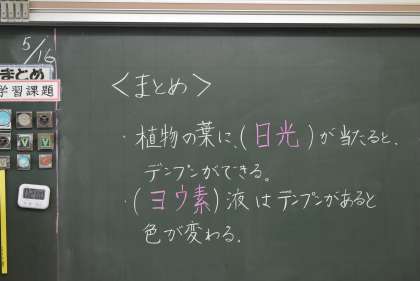 5/16
まとめ
学習課題
＜まとめ＞
・植物の葉に、(日光)が当たると、
デンプンができる。
・(ヨウ素)液はデンプンがあると
色が変わる。